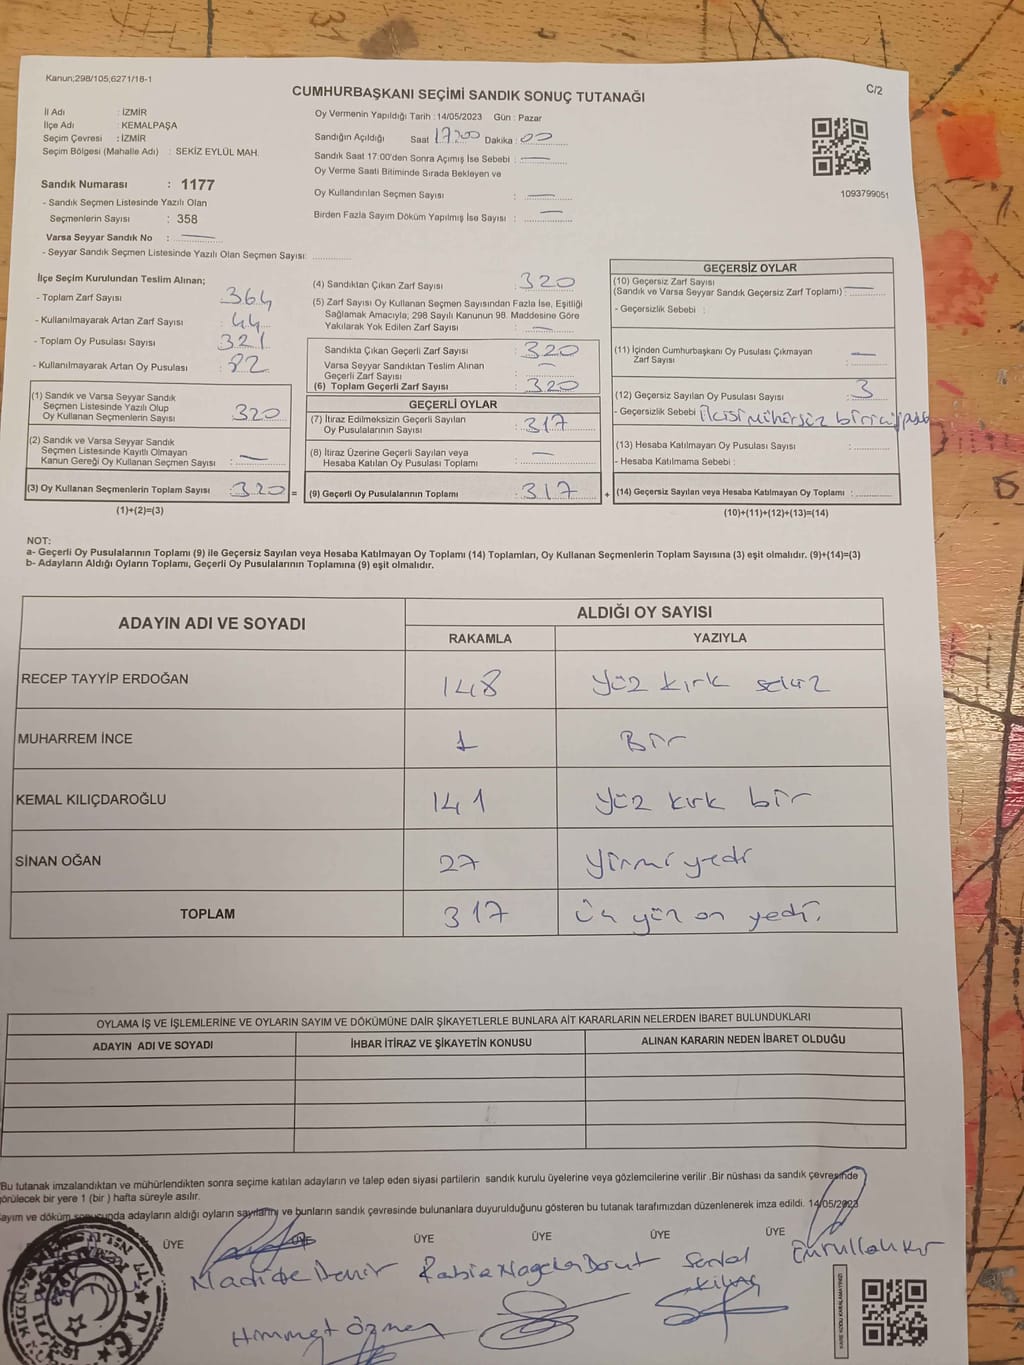 Kanun;298/105;6271/18-1
CUMHURBAŞKANI SEÇİMİ SANDIK SONUÇ TUTANAĞI
C/2
İl Adı : İZMİR
İlçe Adı : KEMALPAŞA
Seçim Çevresi : İZMİR
Seçim Bölgesi (Mahalle Adı) : SEKİZ EYLÜL MAH.
Sandık Numarası : 1177
- Sandık Seçmen Listesinde Yazılı Olan
Seçmenlerin Sayısı : 358
Varsa Seyyar Sandık No : —
- Seyyar Sandık Seçmen Listesinde Yazılı Olan Seçmen Sayısı:
Oy Vermenin Yapıldığı Tarih : 14/05/2023 Gün : Pazar
Sandığın Açıldığı Saat 17:00 Dakika : 00
Sandık Saat 17:00'den Sonra Açımış İse Sebebi : —
Oy Verme Saati Bitiminde Sırada Bekleyen ve
Oy Kullandırılan Seçmen Sayısı : —
Birden Fazla Sayım Döküm Yapılmış İse Sayısı : —
1093799051
İlçe Seçim Kurulundan Teslim Alınan;
- Toplam Zarf Sayısı : 364
- Kullanılmayarak Artan Zarf Sayısı : 44
- Toplam Oy Pusulası Sayısı : 321
- Kullanılmayarak Artan Oy Pusulası :
(1) Sandık ve Varsa Seyyar Sandık
Seçmen Listesinde Yazılı Olup
Oy Kullanan Seçmenlerin Sayısı : 320
(2) Sandık ve Varsa Seyyar Sandık
Seçmen Listesinde Kayıtlı Olmayan
Kanun Gereği Oy Kullanan Seçmen Sayısı : —
(3) Oy Kullanan Seçmenlerin Toplam Sayısı : 320 =
(1)+(2)=(3)
(4) Sandıktan Çıkan Zarf Sayısı : 320
(5) Zarf Sayısı Oy Kullanan Seçmen Sayısından Fazla İse, Eşitliği
Sağlamak Amacıyla; 298 Sayılı Kanunun 98. Maddesine Göre
Yakılarak Yok Edilen Zarf Sayısı : —
Sandıkta Çıkan Geçerli Zarf Sayısı : 320
Varsa Seyyar Sandıktan Teslim Alınan
Geçerli Zarf Sayısı : —
(6) Toplam Geçerli Zarf Sayısı : 320
GEÇERLİ OYLAR
(7) İtiraz Edilmeksizin Geçerli Sayılan
Oy Pusulalarının Sayısı : 317
(8) İtiraz Üzerine Geçerli Sayılan veya
Hesaba Katılan Oy Pusulası Toplamı : —
(9) Geçerli Oy Pusulalarının Toplamı : 317 +
GEÇERSİZ OYLAR
(10) Geçersiz Zarf Sayısı
(Sandık ve Varsa Seyyar Sandık Geçersiz Zarf Toplamı) : —
- Geçersizlik Sebebi :
(11) İçinden Cumhurbaşkanı Oy Pusulası Çıkmayan
Zarf Sayısı : —
(12) Geçersiz Sayılan Oy Pusulası Sayısı : 3
- Geçersizlik Sebebi : ikisi mühürsüz
(13) Hesaba Katılmayan Oy Pusulası Sayısı :
- Hesaba Katılmama Sebebi :
(14) Geçersiz Sayılan veya Hesaba Katılmayan Oy Toplamı :
(10)+(11)+(12)+(13)=(14)
NOT:
a- Geçerli Oy Pusulalarının Toplamı (9) ile Geçersiz Sayılan veya Hesaba Katılmayan Oy Toplamı (14) Toplamları, Oy Kullanan Seçmenlerin Toplam Sayısına (3) eşit olmalıdır. (9)+(14)=(3)
b- Adayların Aldığı Oyların Toplamı, Geçerli Oy Pusulalarının Toplamına (9) eşit olmalıdır.
ADAYIN ADI VE SOYADI
ALDIĞI OY SAYISI
RAKAMLA YAZIYLA
RECEP TAYYİP ERDOĞAN 148 yüz kırk sekiz
MUHARREM İNCE 1 Bir
KEMAL KILIÇDAROĞLU 141 yüz kırk bir
SİNAN OĞAN 27 yirmi yedi
TOPLAM 317 Üç yüz on yedi.
OYLAMA İŞ VE İŞLEMLERİNE VE OYLARIN SAYIM VE DÖKÜMÜNE DAİR ŞİKAYETLERLE BUNLARA AİT KARARLARIN NELERDEN İBARET BULUNDUKLARI
ADAYIN ADI VE SOYADI İHBAR İTİRAZ VE ŞİKAYETİN KONUSU ALINAN KARARIN NEDEN İBARET OLDUĞU
Bu tutanak imzalandıktan ve mühürlendikten sonra seçime katılan adayların ve talep eden siyasi partilerin sandık kurulu üyelerine veya gözlemcilerine verilir .Bir nüshası da sandık çevresinde
görülecek bir yere 1 (bir ) hafta süreyle asılır.
ayım ve döküm sonucunda adayların aldığı oyların sayılarını ve bunların sandık çevresinde bulunanlara duyurulduğunu gösteren bu tutanak tarafımızdan düzenlenerek imza edildi. 14/05/2023
ÜYE ÜYE ÜYE ÜYE ÜYE ÜYE
Madide Demir Rabia Serdal Kılınç Emrullah Kır
Himmet Özmen
T.C.